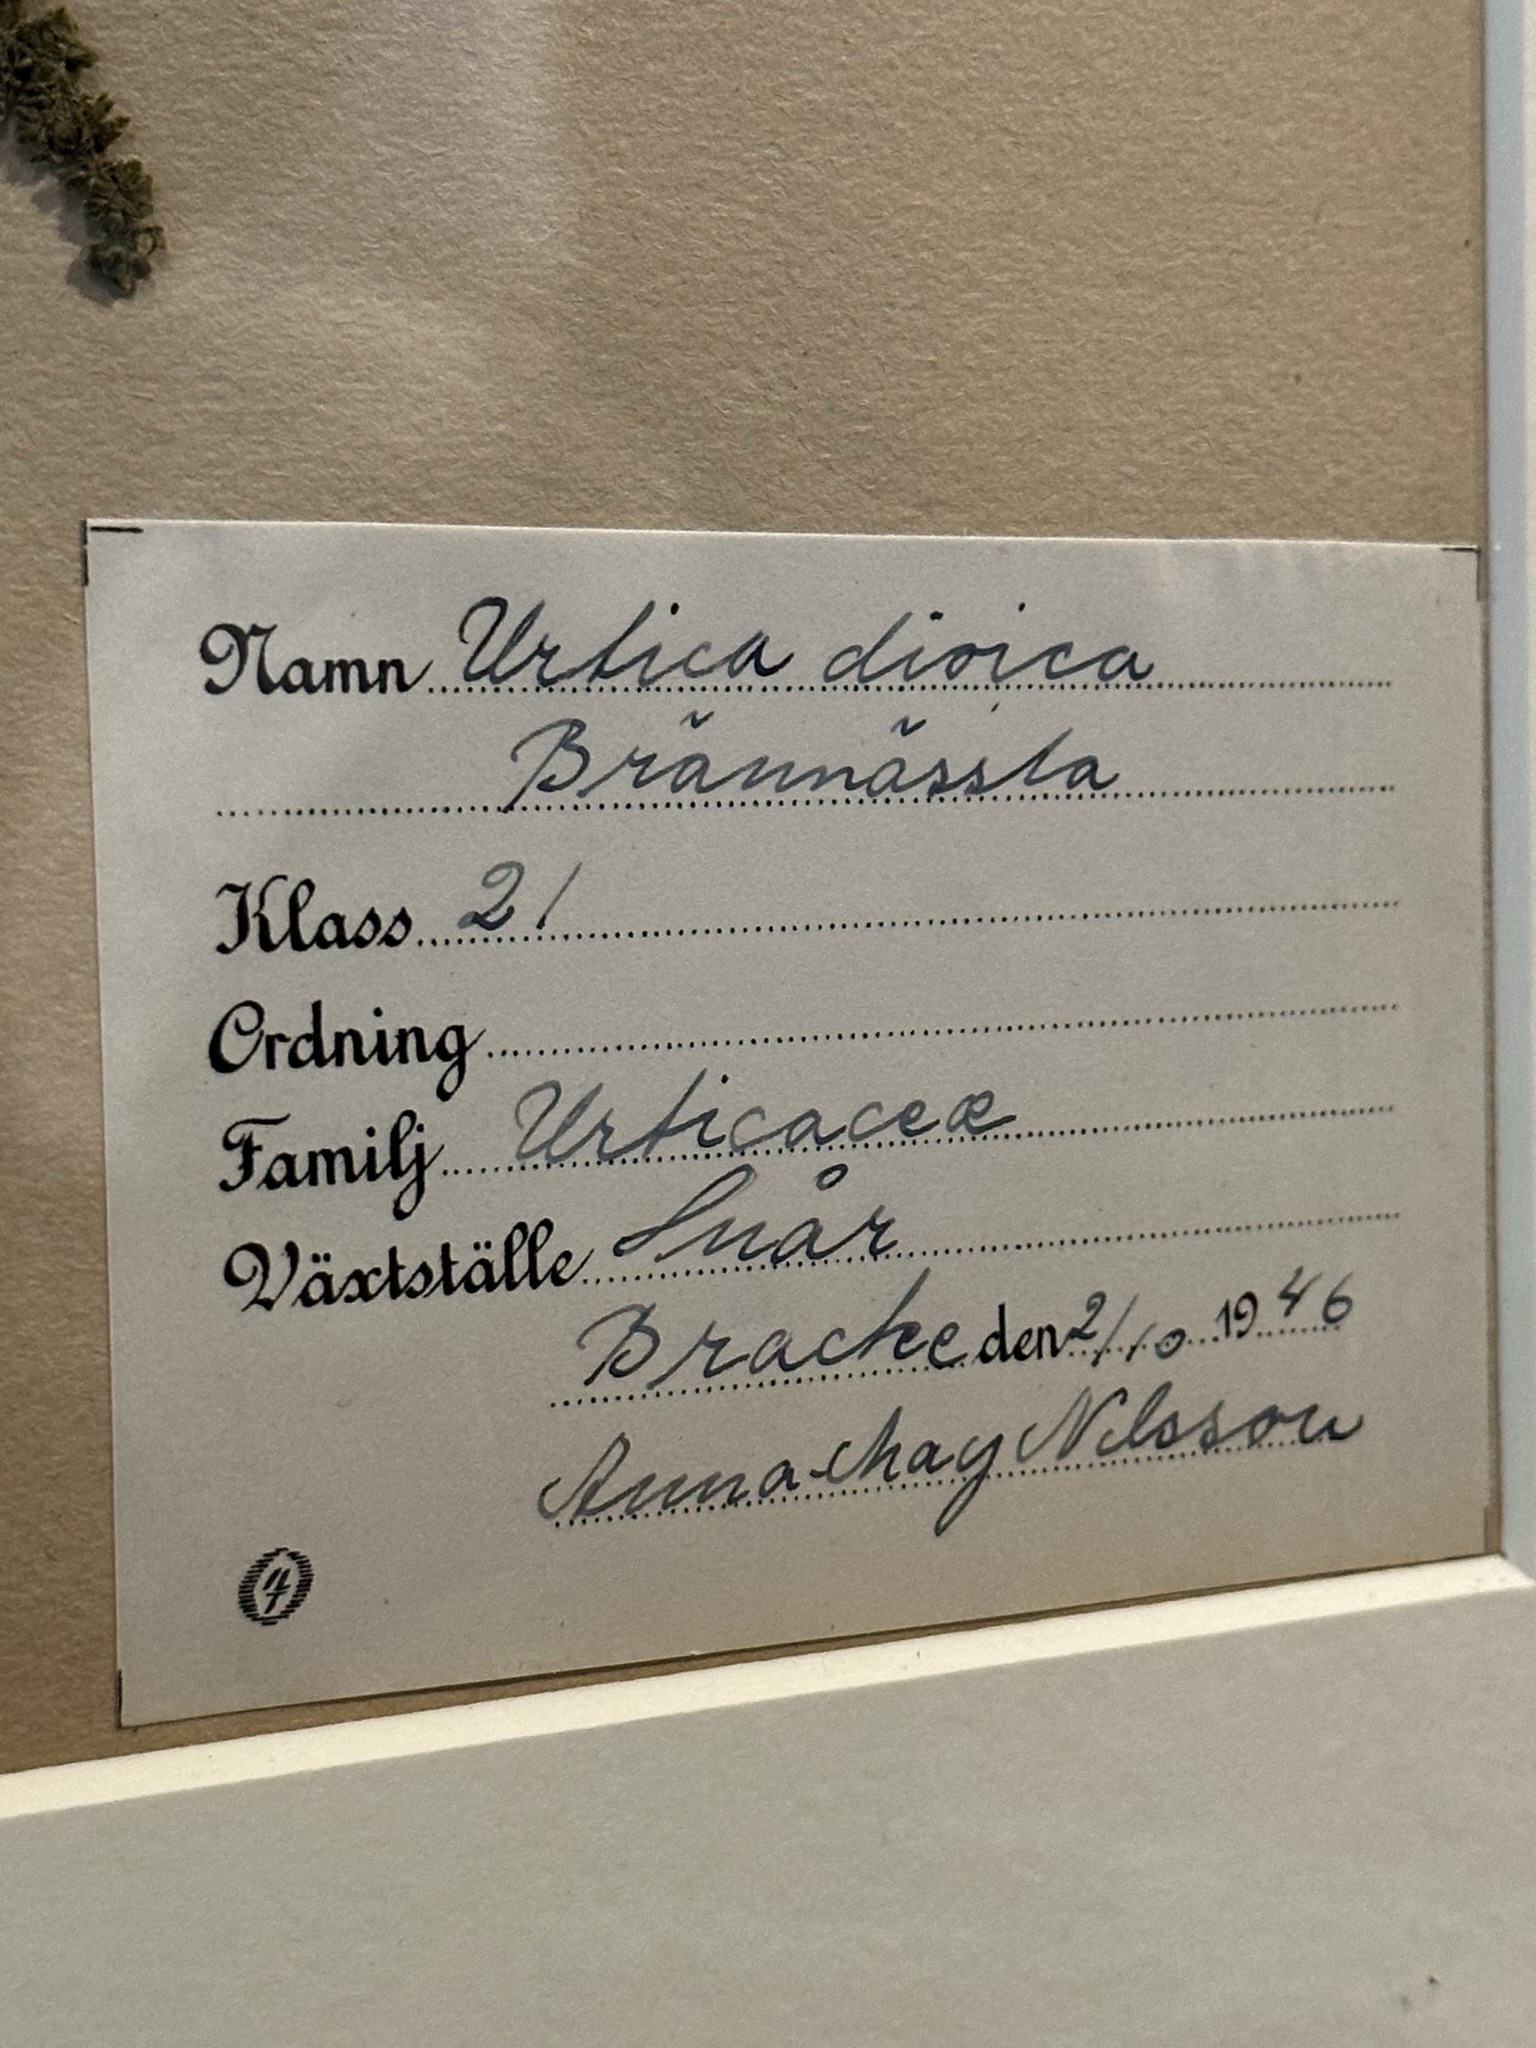 Namn Urtica dioica
Brännässla
Klass 21
Ordning
Familj Urticaceæ
Växtställe Snår
Bracke den 2/10 1946
Anna-May Nilsson